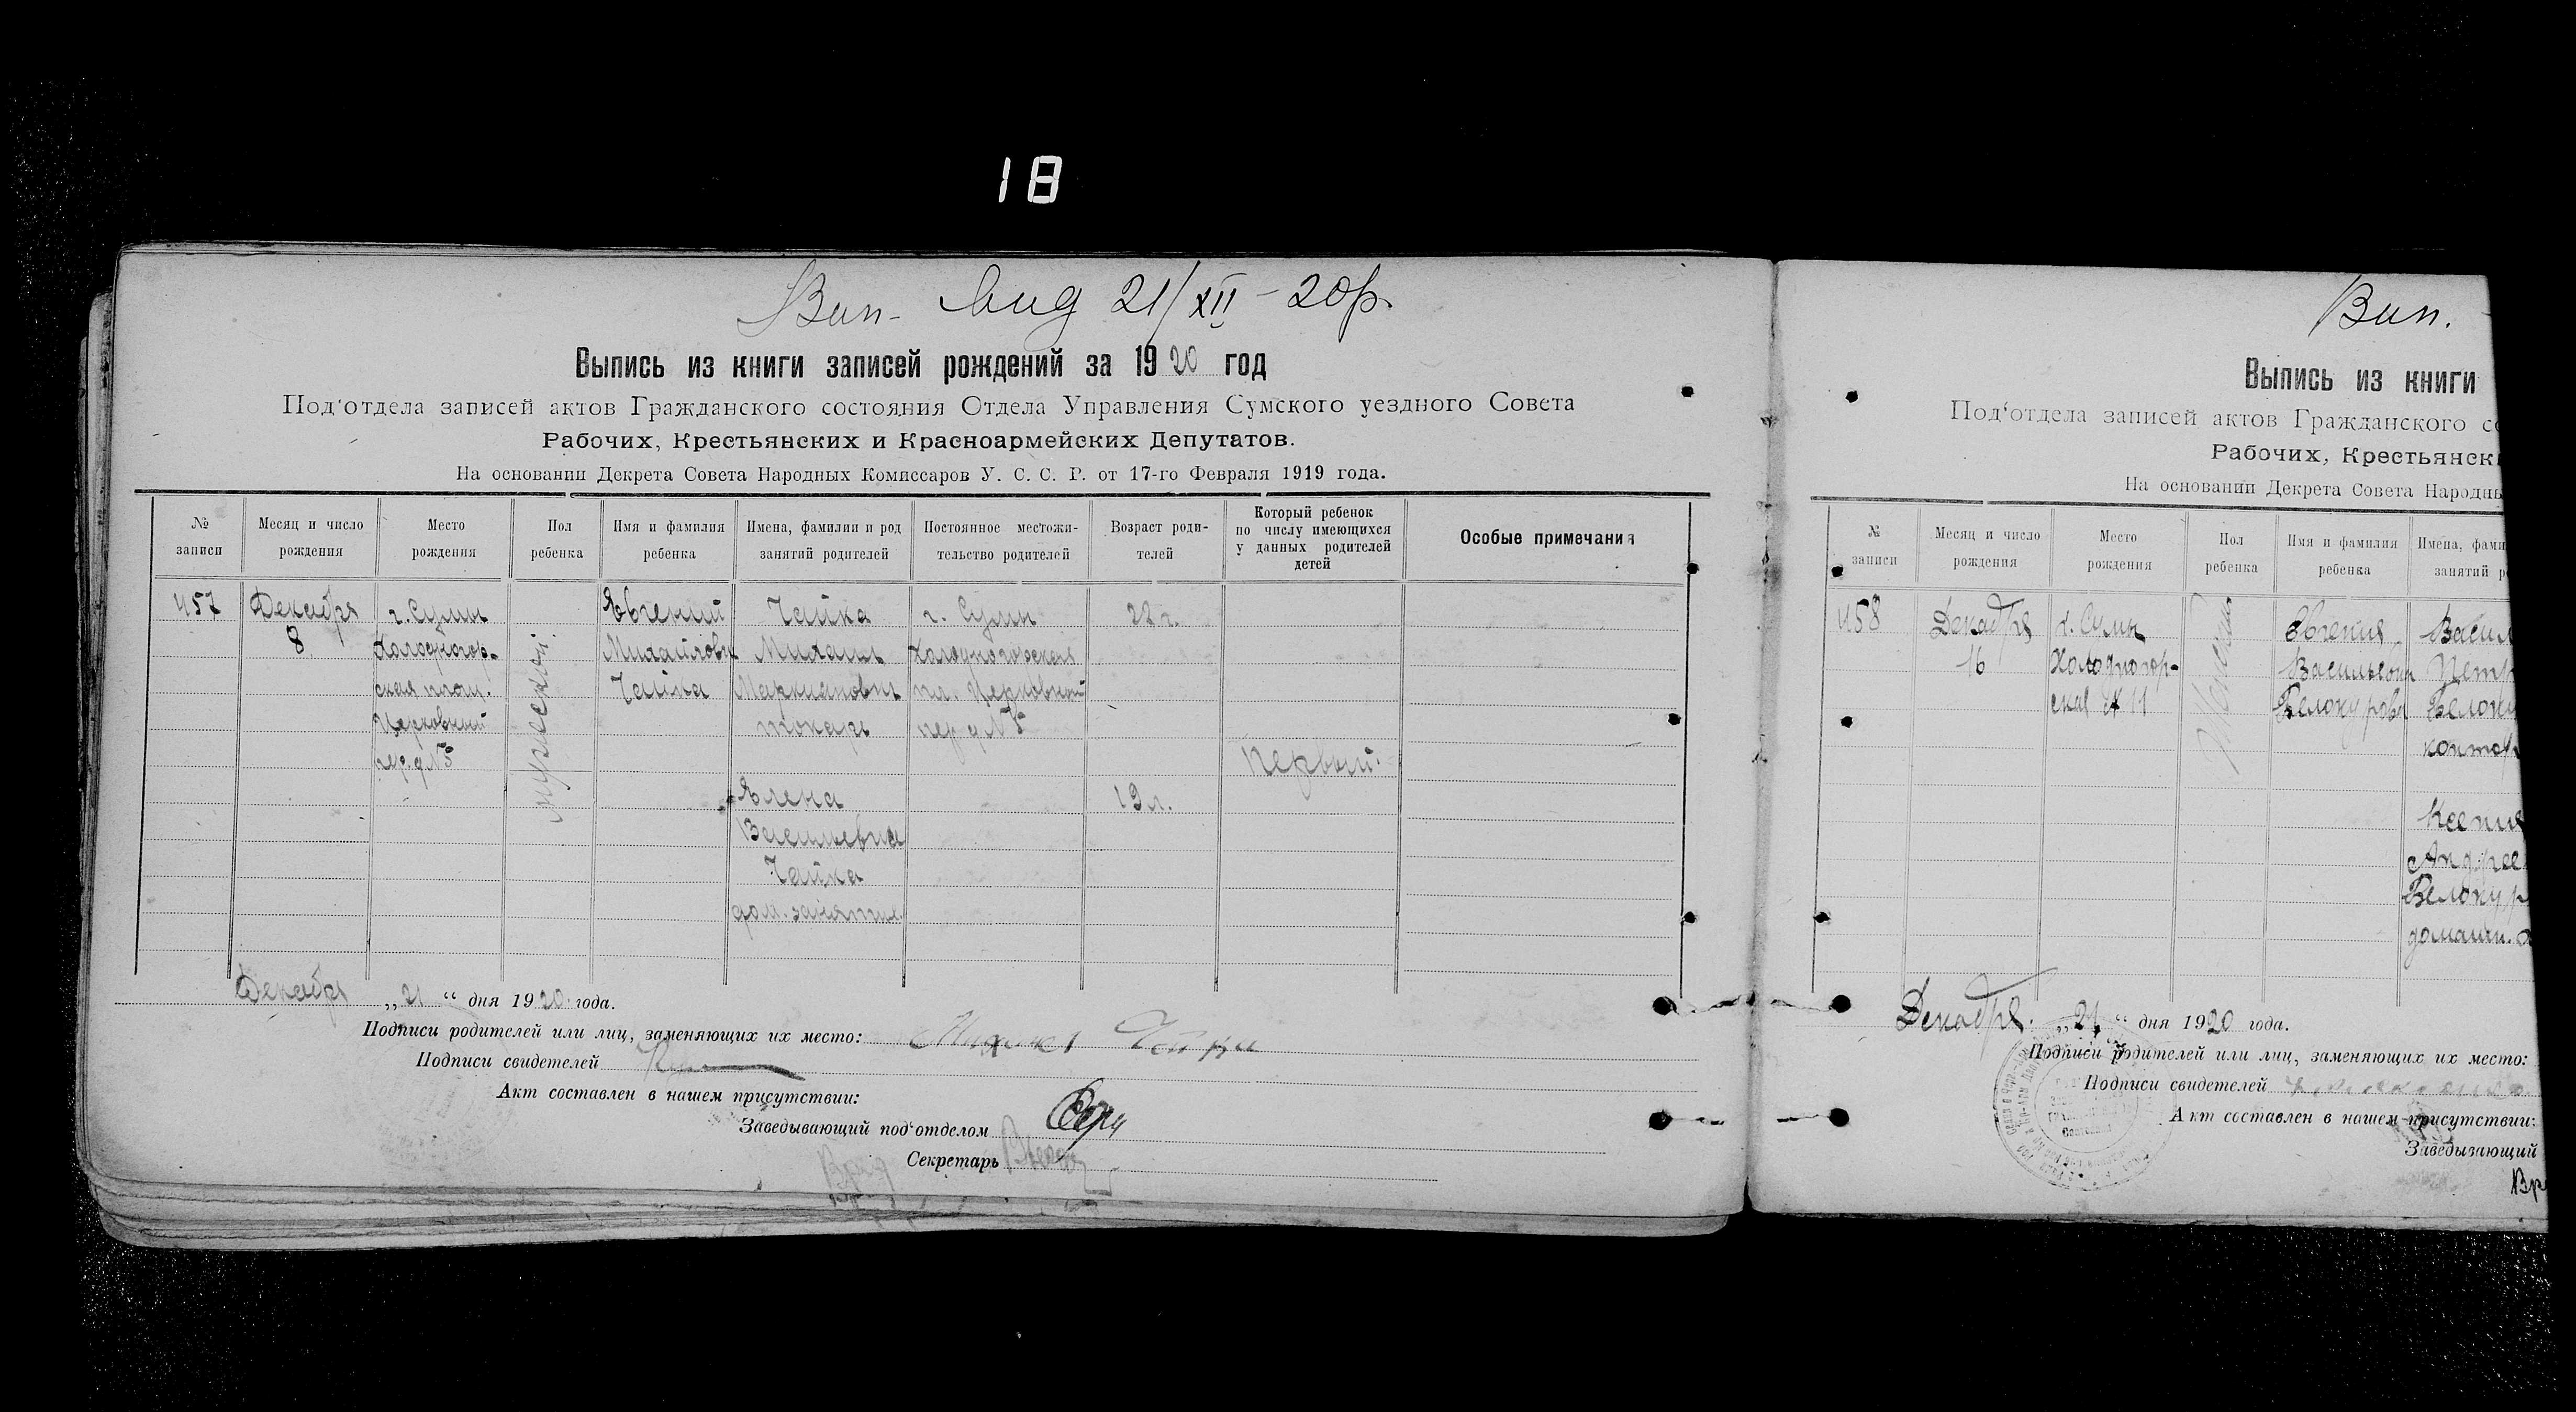 18
Вип. Вид 21/XII-20р.
Выпись из книги записей рождений за 1920 год
Под'отдела записей актов Гражданского состояния Отдела Управления Сумского уездного Совета
Рабочих, Крестьянских и Красноармейских Депутатов.
На основании Декрета Совета Народных Комиссаров У. С. С. Р. от 17-го Февраля 1919 года.
№ записи
Месяц и число рождения
Место рождения
Пол ребенка
Имя и фамилия ребенка
Имена, фамилии и род занятий родителей
Постоянное местожительство родителей
Возраст родителей
Который ребенок по числу имеющихся у данных родителей детей
Особые примечания
457
Декабря
8
г. Сумы
Холодногор-
ская площ.
Церковный
пер. д №5
мужеской
Евгений
Михайлович
Чайка
Чайка
Михаил
Маркианович
токарь
Елена
Васильевна
Чайка
дом. занятие
г. Сумы
Холодногорская
пл. Церковный
пер д №5
22 г.
19 л.
Первый.
Декабря „21“ дня 1920 года.
Подписи родителей или лиц, заменяющих их место: Михаил Чайка
Подписи свидетелей
Акт составлен в нашем присутствии:
Заведывающий под'отделом
Секретарь
Вип.
Выпись из книги
Под'отдела записей актов Гражданского со
Рабочих, Крестьянск
На основании Декрета Совета Народны
№ записи
Месяц и число рождения
Место рождения
Пол ребенка
Имя и фамилия ребенка
Имена, фами
занятий р
458
Декабря
16
г. Сумы
Холодногор-
ская № 11
Женский
Евгения
Васильевна
Белокурова
Васил
Петр
Белоку
контор
Ксения
Андрее
Белокур
домашн.
Декабря „21“ дня 1920 года.
Подписи родителей или лиц, заменяющих их место:
Подписи свидетелей
Акт составлен в нашем присутствии:
Заведывающий
Вр